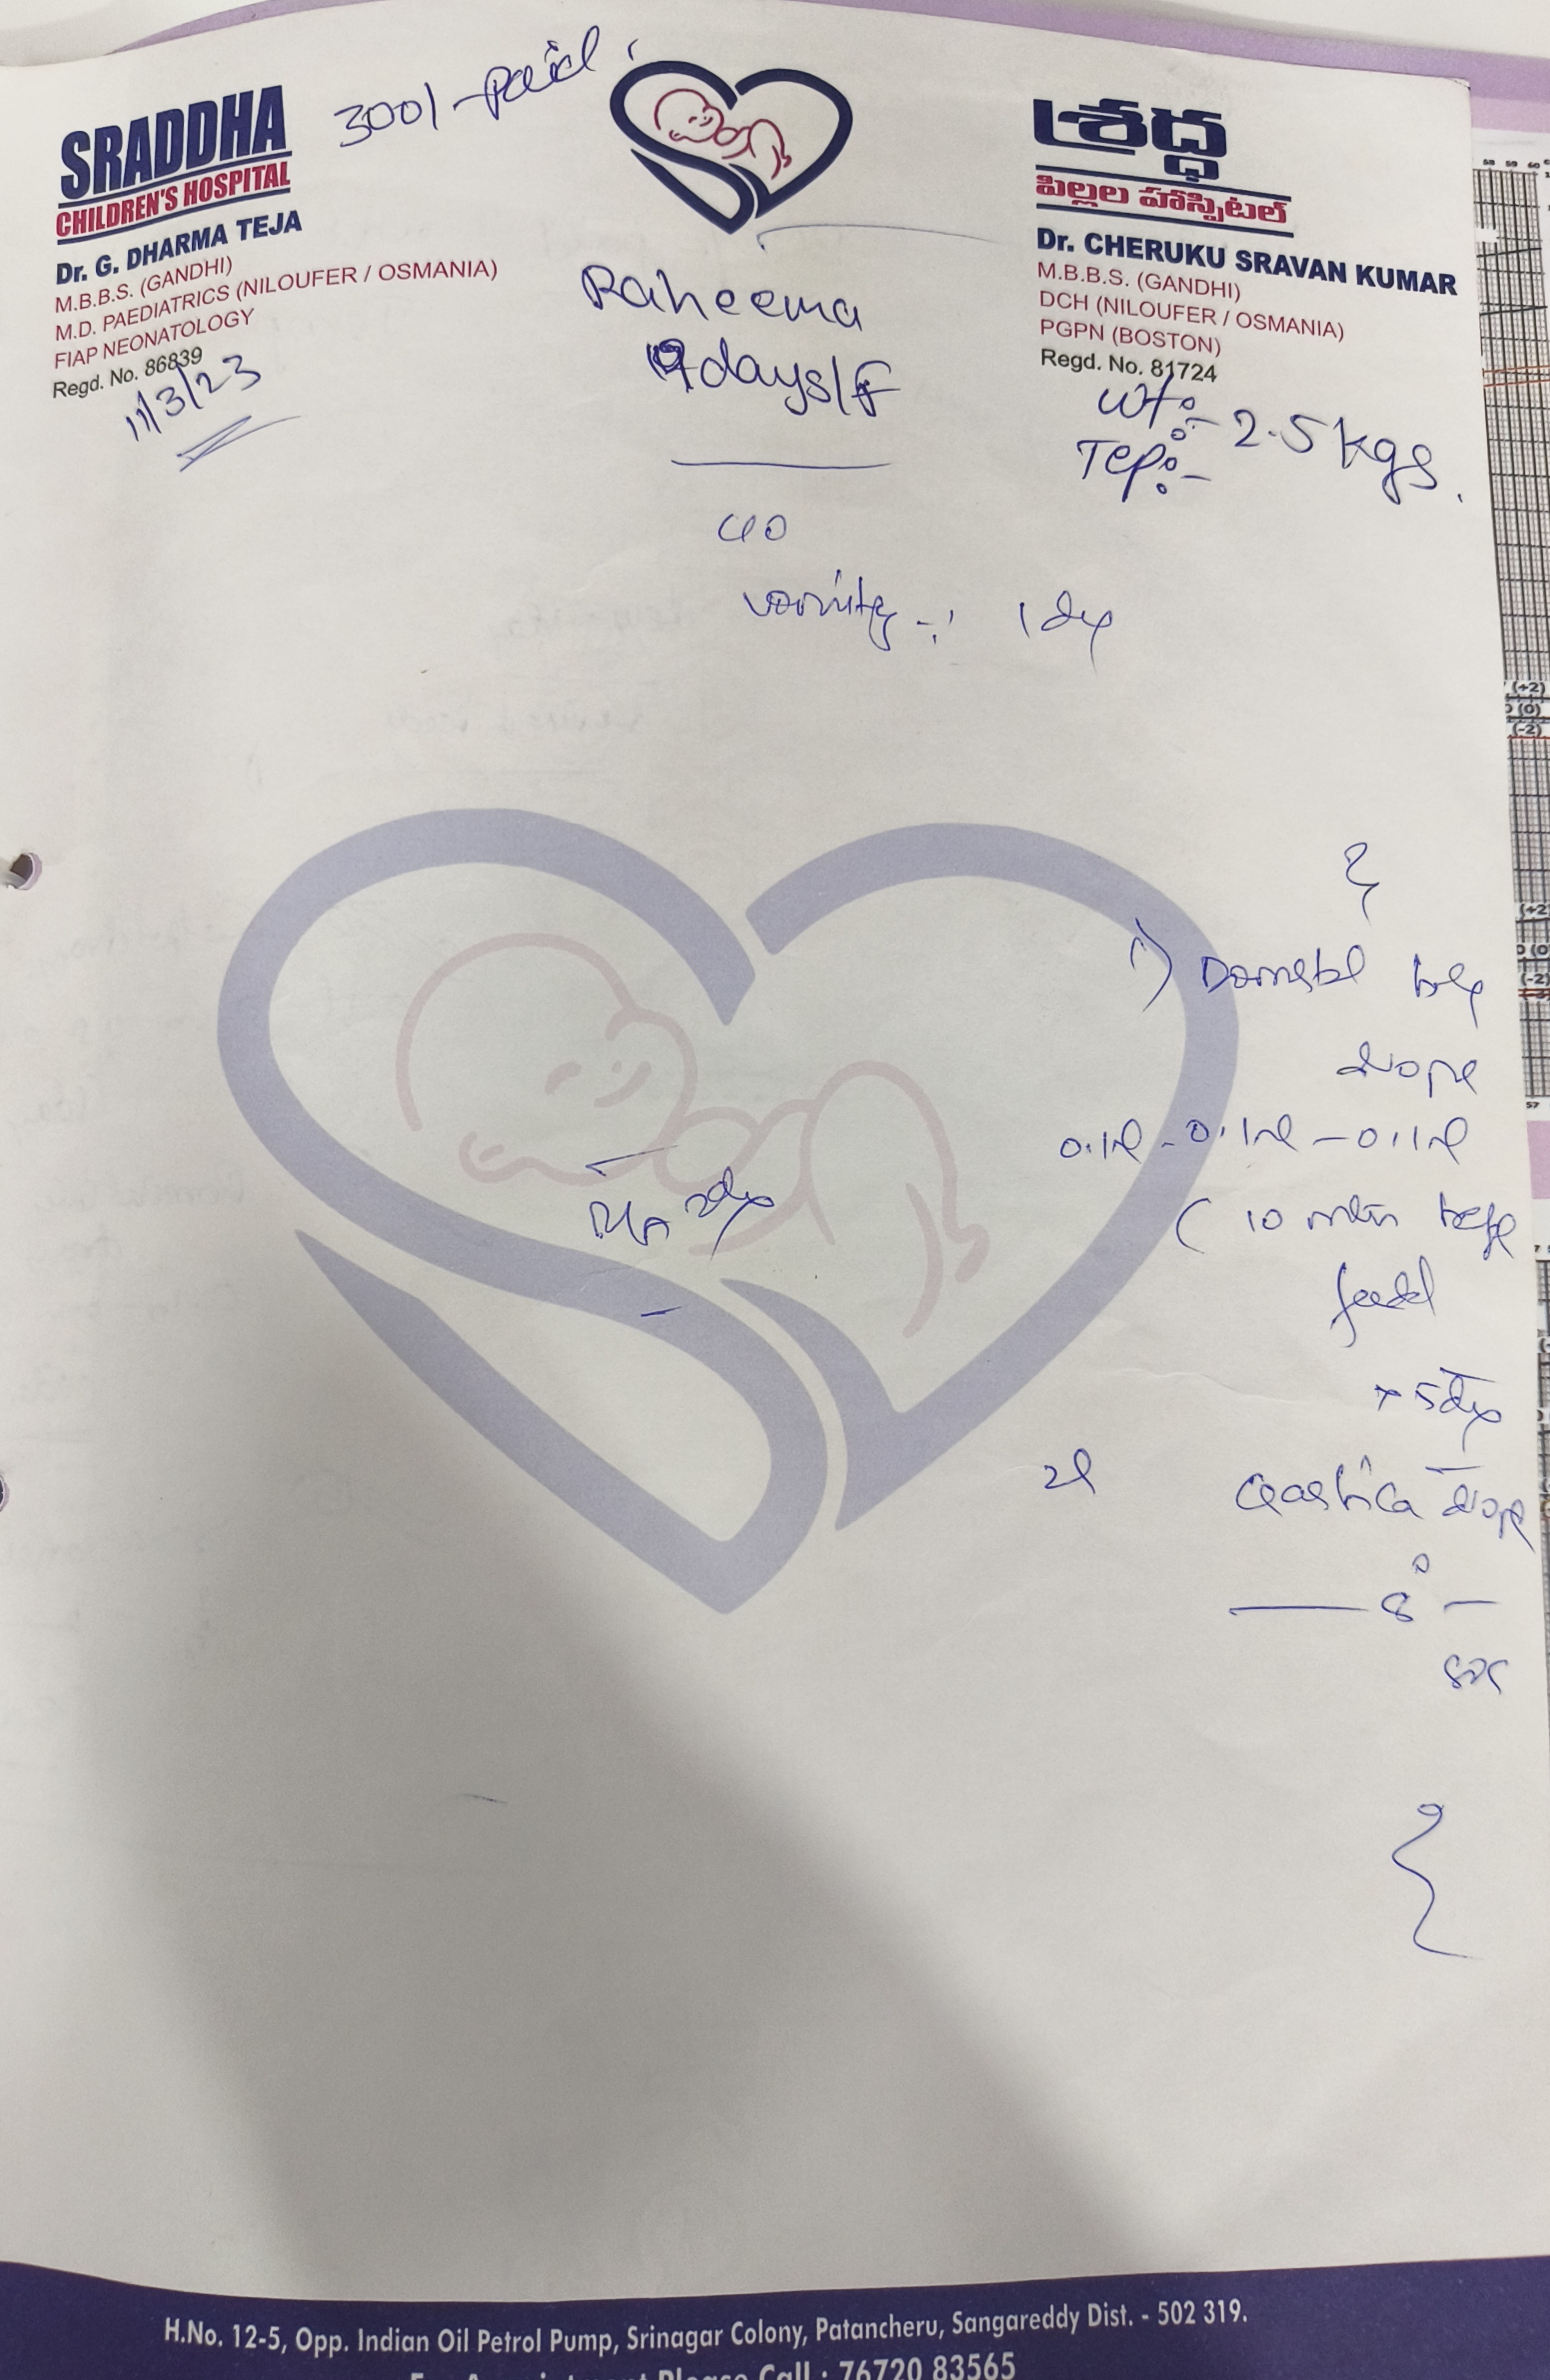 300/- Paid
SRADDHA
CHILDREN'S HOSPITAL
Dr. G. DHARMA TEJA
M.B.B.S. (GANDHI)
M.D. PAEDIATRICS (NILOUFER / OSMANIA)
FIAP NEONATOLOGY
Regd. No. 86839
11/3/23
శ్రద్ధ
పిల్లల హాస్పిటల్
Dr. CHERUKU SRAVAN KUMAR
M.B.B.S. (GANDHI)
DCH (NILOUFER / OSMANIA)
PGPN (BOSTON)
Regd. No. 81724
Raheema
9days/F
Wt:- 2.5 kgs.
Tep:-
c/o
1)
drops
0.1ml - 0.1ml - 0.1ml
( 10 min before
feed
x 5days
2)
drops
8
sos
H.No. 12-5, Opp. Indian Oil Petrol Pump, Srinagar Colony, Patancheru, Sangareddy Dist. - 502 319.
Please Call : 76720 83565